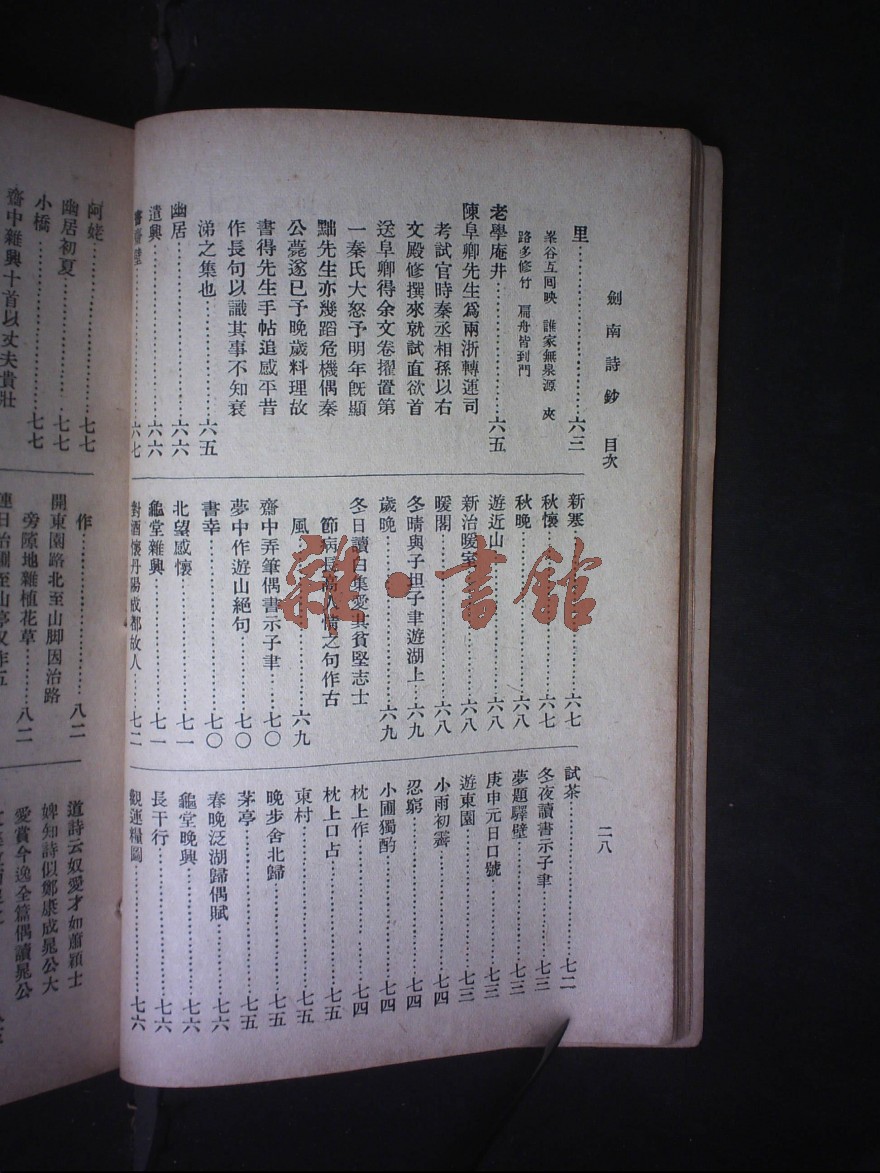 劍南詩鈔　目次
二八
里……六三
峯谷互囘映　誰家無泉源　夾
路多修竹　扁舟皆到門
老學庵井……六五
陳阜卿先生爲兩浙轉運司
考試官時秦丞相孫以右
文殿修撰來就試直欲首
送阜卿得余文卷擢置第
一秦氏大怒予明年旣顯
黜先生亦幾蹈危機偶秦
公薨遂已予晚歲料理故
書得先生手帖追感平昔
作長句以識其事不知衰
涕之集也……六五
幽居……六六
遣興……六六
書齋壁……六七
新寒……六七
秋懷……六七
秋晚……六八
遊近山……六八
新治暖室……六八
暖閣……六八
冬晴與子坦子聿遊湖上……六九
歲晚……六九
冬日讀白集愛其貧堅志士
節病長高人情之句作古
風……六九
齋中弄筆偶書示子聿……七〇
夢中作遊山絕句……七〇
書幸……七〇
北望感懷……七一
龜堂雜興……七一
對酒懷丹陽成都故人……七二
試茶……七二
冬夜讀書示子聿……七三
夢題驛壁……七三
庚申元日口號……七三
遊東園……七三
小雨初霽……七四
忍窮……七四
小圃獨酌……七四
枕上作……七四
枕上口占……七五
東村……七五
晚步舍北歸……七五
茅亭……七五
春晚泛湖歸偶賦……七六
龜堂晚興……七六
長干行……七六
觀運糧圖……七六
阿姥……七七
幽居初夏……七七
小橋……七七
齋中雜興十首以丈夫貴壯
作……八二
開東園路北至山脚因治路
旁隙地雜植花草……八二
連日治圃至山亭又作五
道詩云奴愛才如蕭穎士
婢知詩似鄭康成晁公大
愛賞今逸全篇偶讀晁公
雜·書館